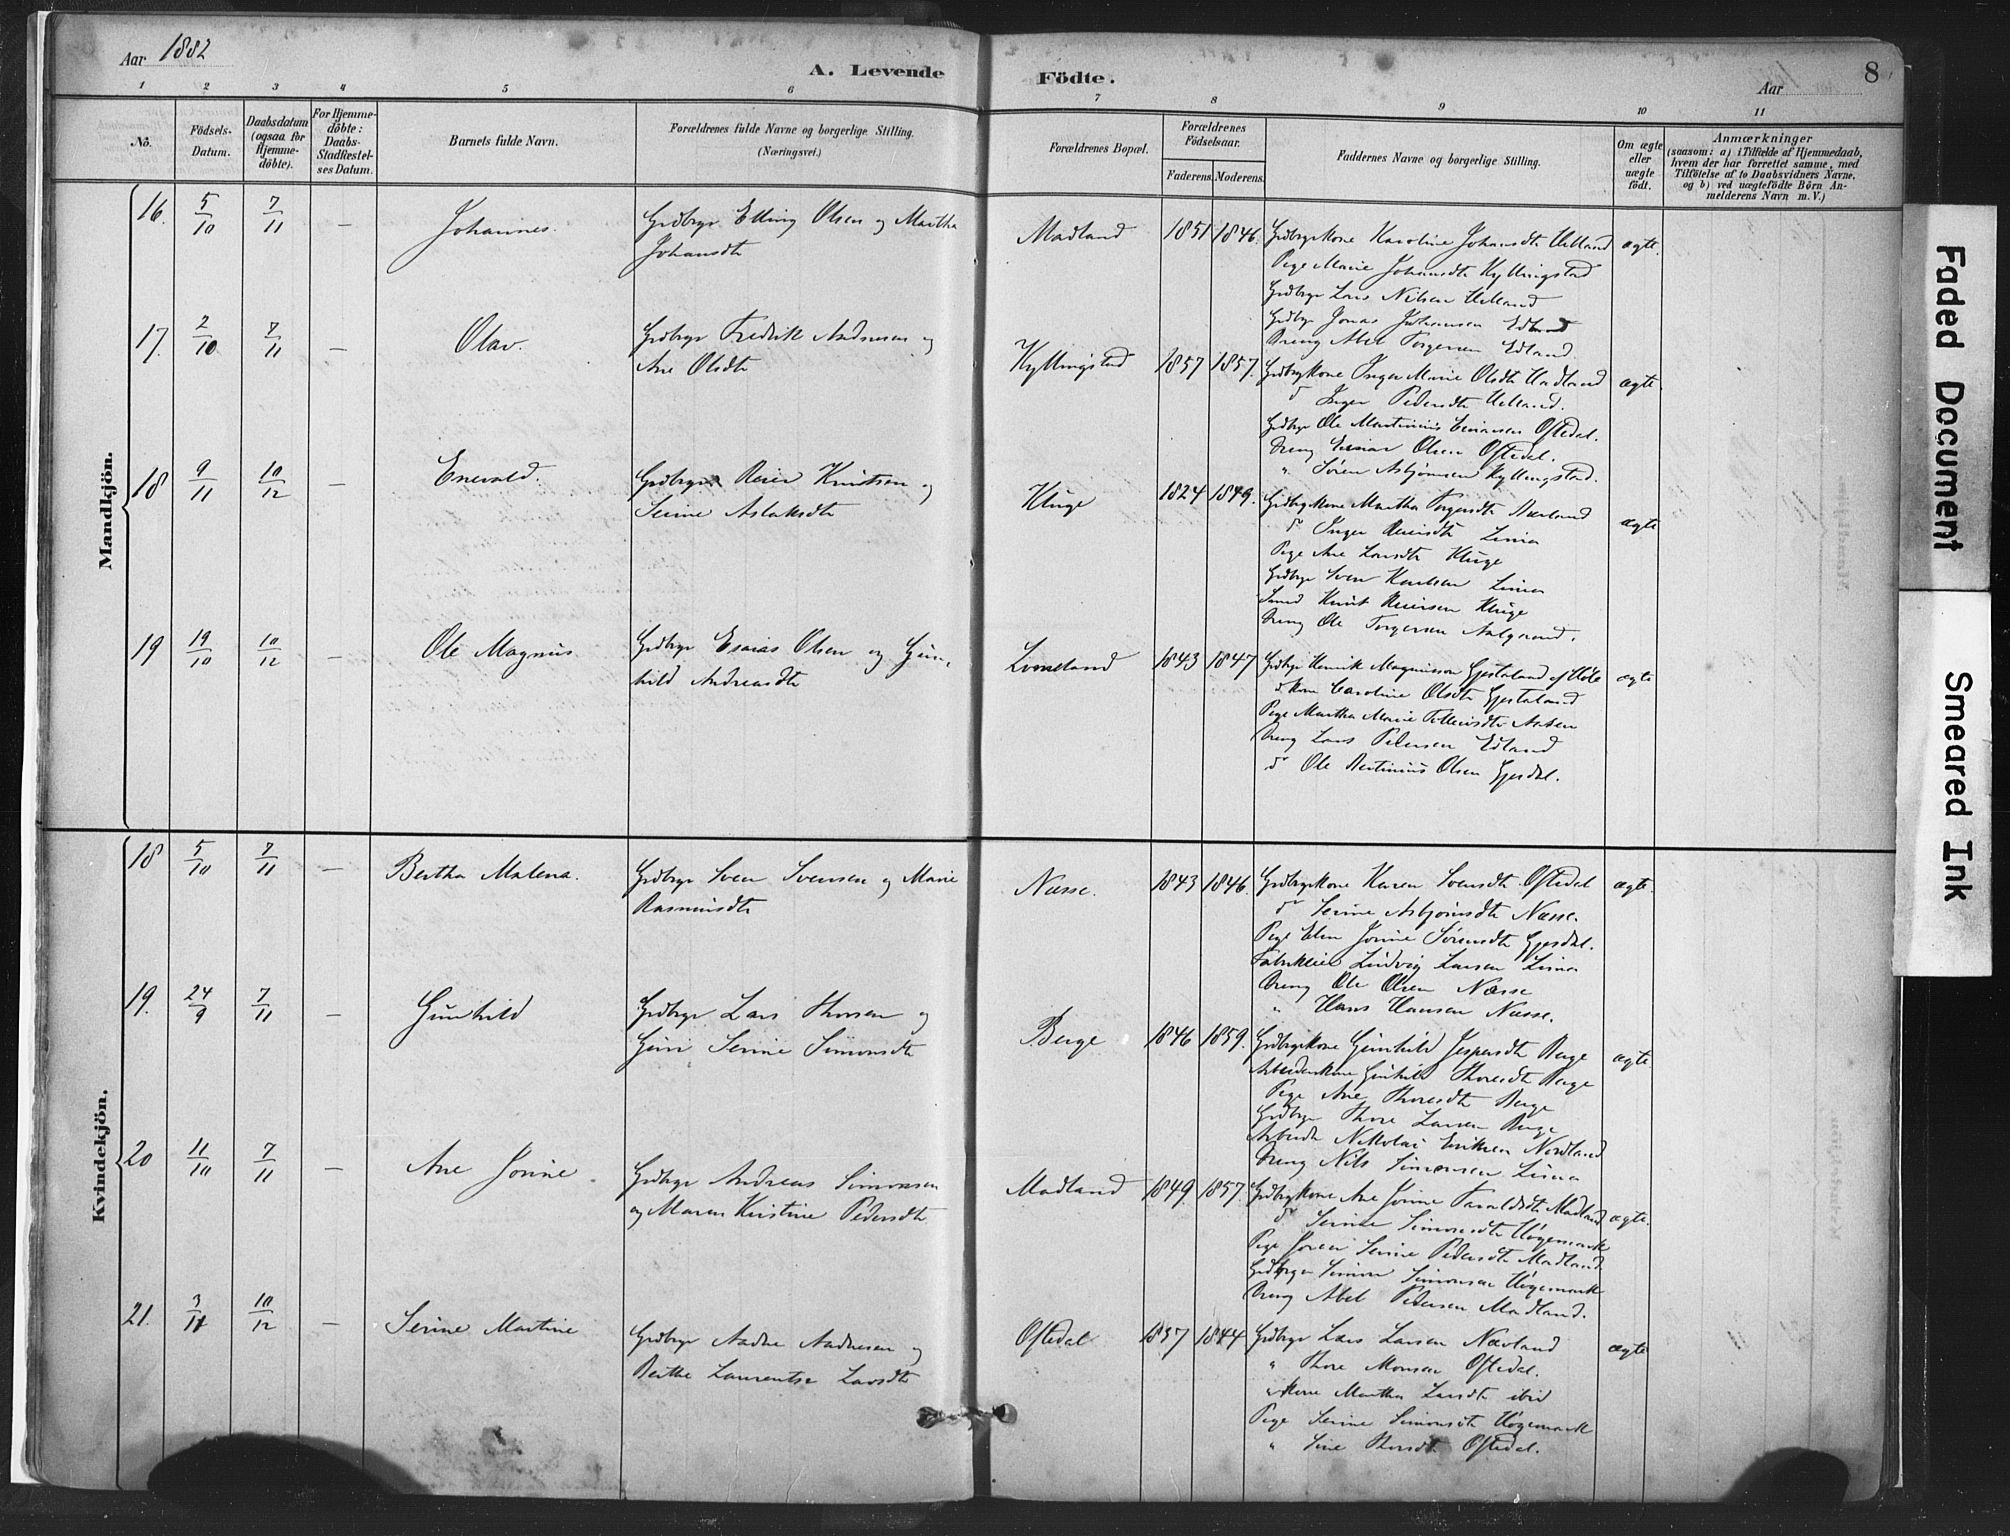 Aar 1882
A. Levende
Födte.
8
Aar
1 2 3 4 5 6 7 8 9 10 11
No.
Födsels-Datum.
Daabsdatum (ogsaa for Hjemmedöbte).
For Hjemmedöbte: Daabs-Stadfæstelses Datum.
Barnets fulde Navn.
Forældrenes fulde Navne og borgerlige Stilling. (Næringsvei.)
Forældrenes Bopæl.
Forældrenes Födselsaar.
Faderens. Moderens.
Faddernes Navne og borgerlige Stilling.
Om ægte eller uægte födt.
Anmærkninger
(saasom: a) i Tilfælde af Hjemmedaab,
hvem der har forrettet samme, med
Tilföielse af to Daabsvidners Navne.
og b) ved uægtefödte Börn Anmelderens Navn m. V.)
Mandkjön.
16. 5/10 7/11 — Johannes.
Grdbrgr Elling Olsen og Martha
Johansdtr
Madland 1851 1846. ægte.
Grdbrgrkone Karoline Johansdtr Uelland
Pige Marie Johansdtr Kyllingstad
Grdbrgr Lars Nilsen Uelland
Grdbrgr Jonas Johansen Edland
Dreng Abel Torgersen Edland
17. 2/10 7/11 — Olav.
Grdbrgr Fredrik Andresen og
Ane Olsdtr
Kyllingstad 1857 1857. ægte.
Grdbrgrkone Inger Marie Olsdtr Madland
do Inger Pedersdtr Uelland.
Grdbrgr Ole Martinius Olsen Oftedal.
Dreng Olsen Oftedal.
" Sören Asbjörnsen Kyllingstad.
18 9/11 10/12 — Enevald.
Grdbrgr Reier Knutsen og
Serine Aslaksdtr
Kluge 1824 1849. ægte
Grdbrgrkone Martha Torgersdtr Nærland
do Inger Reiersdtr Lima
Pige Ane Larsdtr Kluge
Grdbrgr Sven Lima
Smed Knut Reiersen Kluge
Dreng Ole Torgersen Aalgaard.
19 19/10 10/12 — Ole Magnus
Grdbrgr Esaias Olsen og Gun-
hild Andreasdtr
Limeland 1843 1847 ægte
Grdbrgr Henrik Magnussen Gjestaland af Höle
do kone Caroline Olsdtr Gjestaland
Pige Martha Marie Tollevsdtr Aasen
Dreng Lars Pedersen Edland
do Ole Bertinius Olsen Gjesdal.
Kvindekjön.
18 5/10 7/11 — Bertha Malena.
Grdbrgr Sven Svensen og Marie
Rasmusdtr
Næsse. 1843 1846 ægte.
Grdbrgrkone Karen Svensdtr Oftedal
do Serine Asbjörnsdtr Næsse.
Pige Elen Jonine Sörensdtr Gjesdal.
Fabrikeier Ludvig Larsen Lima
Dreng Ole Olsen Næsse
" Hans Hansen Næsse.
19. 24/9 7/11 — Gunhild
Grdbrgr Lars Thorsen og
Guri Serine Simonsdtr
Berge 1846 1859. ægte.
Grdbrgrkone Gunhild Jespersdtr Berge
Arbeiderkone Gunhild Thoresdtr Berge
Pige Ane Thoresdtr Berge
Grdbrgr Thore Larsen Berge
Arbeider Nikolai Eriksen Nordland
Dreng Nils Simonsen Lima
20 11/10 7/11 — Ane Jonine.
Grdbrgr Andreas Simonsen
og Maren Kirstine Pedersdtr
Madland 1849 1857. ægte.
Grdbrgrkone Ane Jonine Taraldsdtr Madland
do Serine Simonsdtr Högemork
Pige Serine Pedersdtr Madland.
Grdbrgr Simon Simonsen Högemork
Dreng Abel Pedersen Madland.
21. 3/11 10/12 — Serine Martine
Grdbrgr Aadne Aadnesen og
Berthe Laurentse Larsdtr
Oftedal 1837 1844 ægte
Grdbrgr Lars Larsen Nævland
" Thore Monsen Oftedal.
" kone Martha Larsdtr ibid
Pige Serine Simonsdtr Högemork
" Sine Thorsdtr Oftedal.
Faded Document
Smeared Ink